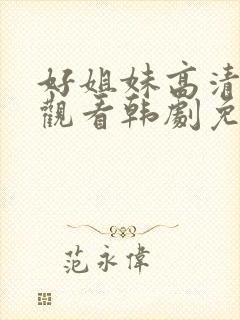 好姐妹高清
觀看韩劇免
范永偉